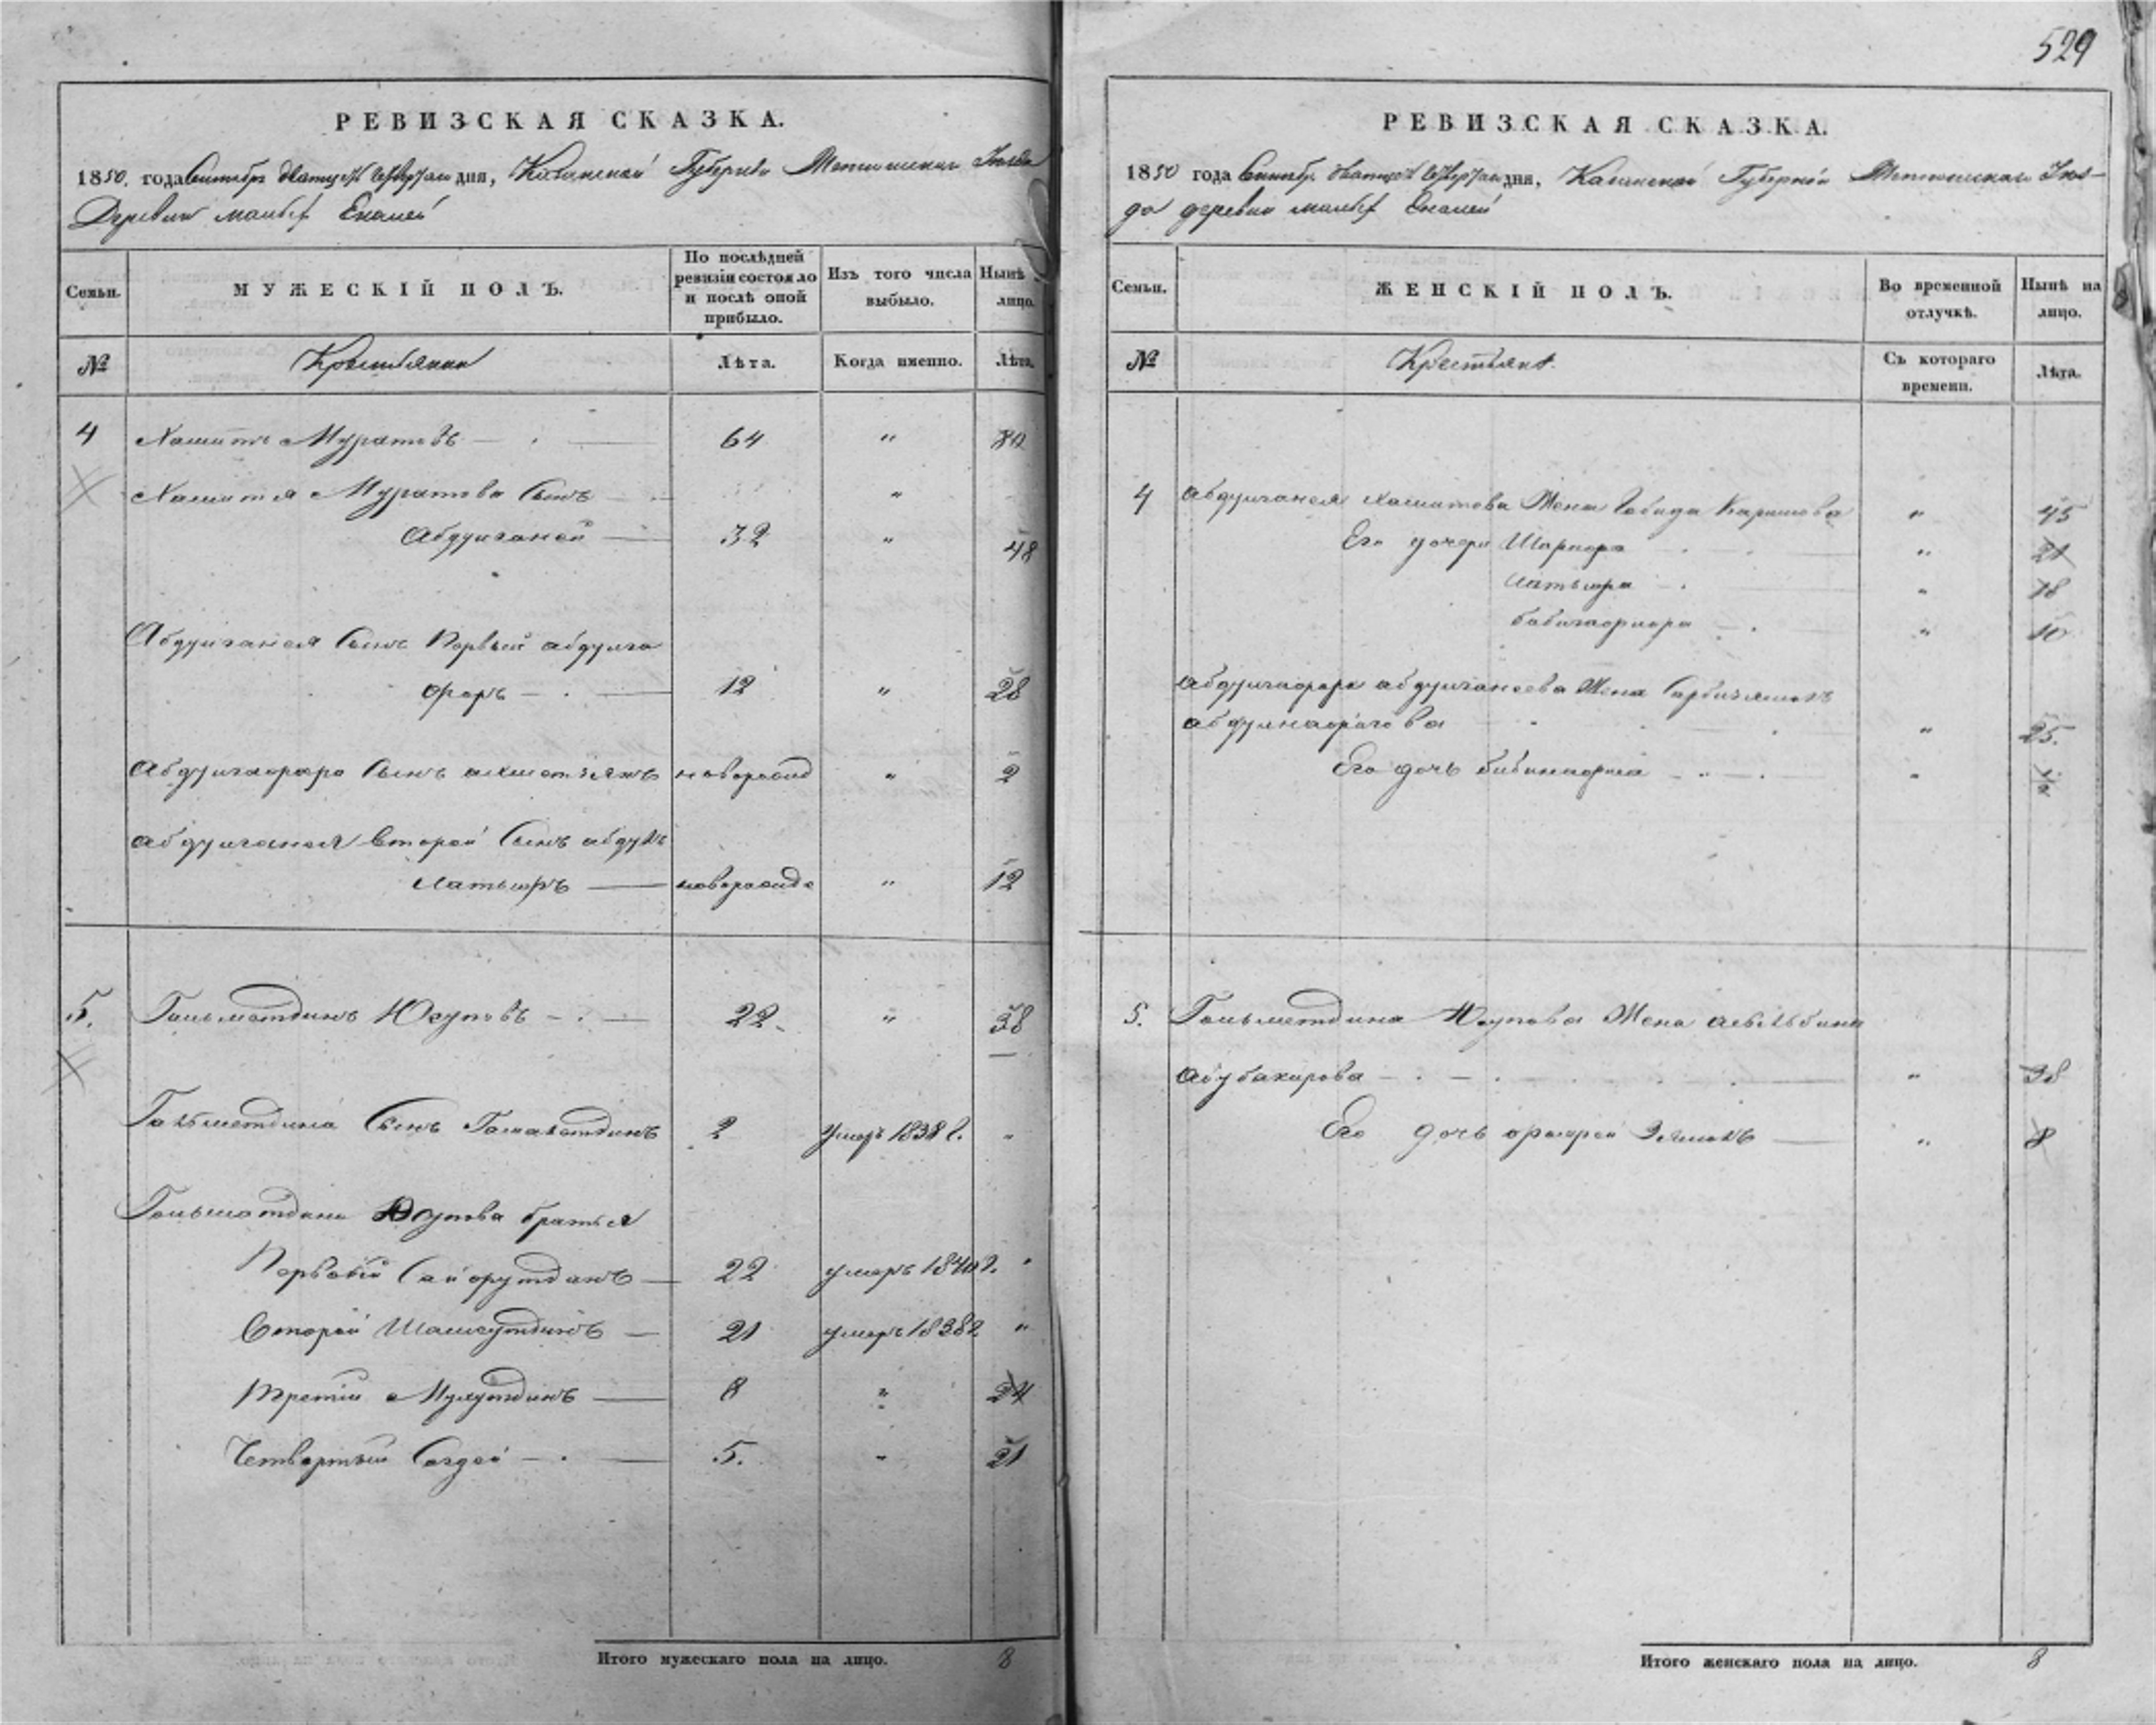 529
РЕВИЗСКАЯ СКАЗКА.
1850. года Сентября дня, Казанской Губернии Тетюшскаго Уезда
Деревни Малых Еналей
Семьи.
МУЖЕСКІЙ ПОЛЪ.
По послѣдней ревизіи состояло и послѣ оной прибыло.
Изъ того числа выбыло.
Нынѣ лицо.
№
Крестьяне
Лѣта.
Когда именно.
Лѣта.
4 Хашитъ Муратовъ 64 " 80
Хашита Муратова Сынъ "
Абдулганей 32 " 48
Абдулганея Сынъ Первый абдулга
фаръ 12 " 28
Абдулгафара Сынъ ахметзянъ новорожд " 2
абдулганея второй Сынъ абдулъ
латыфъ новорожде " 12
5. Гильметдинъ Юсуповъ 22 " 38
Гильметдина Сынъ 2 умеръ 1838 г. "
Гильметдина Юсупова братья
Первый Сайфутдинъ 22 умеръ 1840 г. "
Второй Шамсутдинъ 21 умеръ 1838 г "
Третій 8 " 24
Четвертый Сагдей 5. " 21
Итого мужескаго пола на лицо. 8
РЕВИЗСКАЯ СКАЗКА.
1850 года Сентябр. дня, Казанской Губерніи Тетюшскаго Уез-
да деревни малых Еналей
Семьи.
ЖЕНСКІЙ ПОЛЪ.
Во временной отлучкѣ.
Нынѣ на лицо.
№
Крестьяне.
Съ котораго времени.
Лѣта.
4 абдулганея хашитова Жена Каримова " 45
Его дочери " 21
" 18
" 10
абдулгафара абдулганеева Жена
" 25.
Его дочь " 1/2
5. Гильметдина Юсупова Жена
абубакирова " 38
Его дочь " 8
Итого женскаго пола на лицо. 8